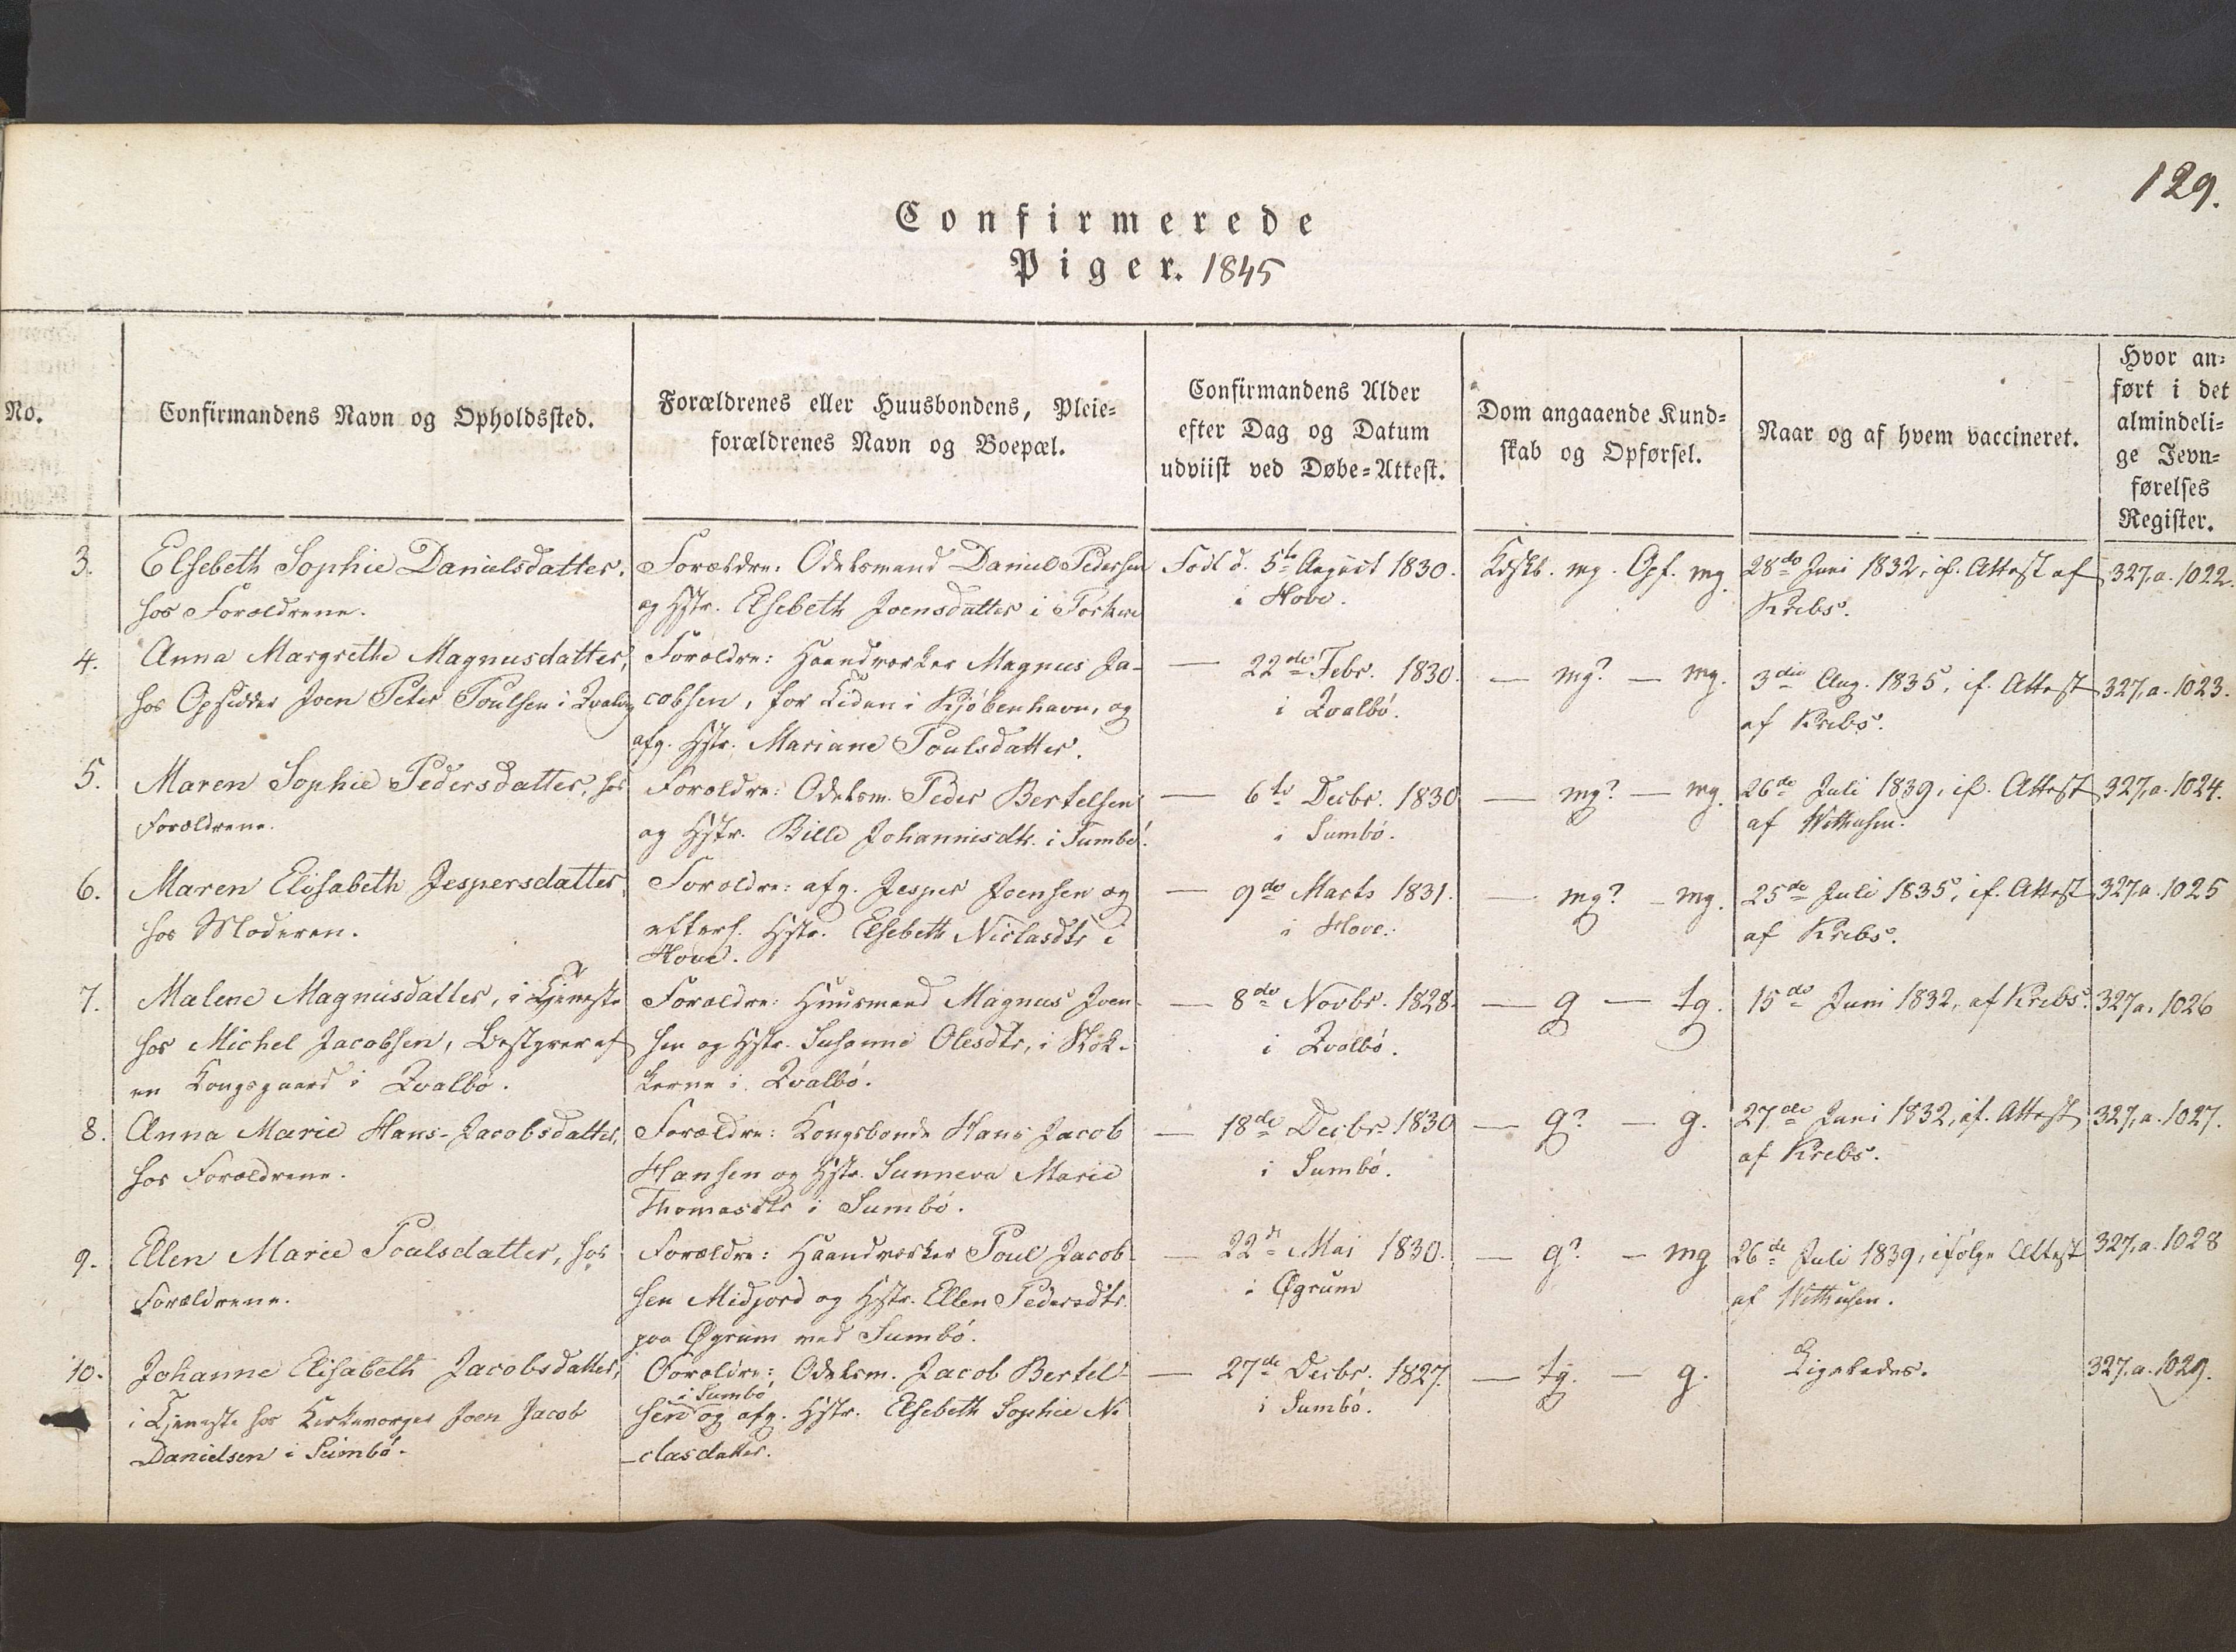 129.
Confirmerede
Piger. 1845
No.
Confirmandens Navn og Opholdssted.
Forældrenes eller Huusbondens, Pleie-
forældrenes Navn og Boepæl.
Confirmandens Alder
efter Dag og Datum
udviist ved Døbe-Attest.
Dom angaaende Kund-
skab og Opførsel.
Naar og af hvem vaccineret.
Hvor an-
ført i det
almindeli-
ge Jevn-
førelses
Register.
3.
Elsebeth Sophie Danielsdatter.
hos Forældrene.
Forældre: Odelsmand Daniel Pedersen
og Hstr. Elsebeth Joensdatter i Porkere
Född d. 5te August 1830.
i Hove.
Kdskb. mg. Opf. mg.
28de Juni 1832, if. Attest af
Krebs.
327,a.1022.
4.
Anna Margrethe Magnusdatter,
hos Opsidder Joen Peter Poulsen i Qvalbø
Forældre: Haandværker Magnus Ja-
cobsen, for Tiden i Kjøbenhavn, og
afg. Hstr. Mariane Poulsdatter.
— 22de Febr. 1830.
i Qvalbö.
— mg? — mg.
3die Aug. 1835, if. Attest
af Krebs.
327,a.1023.
5.
Maren Sophie Pedersdatter, hos
Forældrene.
Forældre: Odelsm. Peder Bertelsen
og Hstr. Bille Johannisdtr. i Sumbö.
— 6te Decbr. 1830
i Sumbö.
— mg? — mg.
26de Juli 1839, if. Attest
af Withusen.
327,a.1024.
6.
Maren Elisabeth Jespersdatter,
hos Moderen.
Forældre: afg. Jesper Joensen og
efterl. Hstr. Elsebeth Niclasdtr i
Hove.
— 9de Marts 1831.
i Hove.
— mg? — mg.
25de Juli 1835, if. Attest
af Krebs.
327a.1025
7.
Malene Magnusdatter, i Tjeneste
hos Michel Jacobsen, Bestyrer af
en Kongsgaard i Qvalbø.
Forældre: Huusmand Magnus Joen-
sen og Hstr. Susanne Olesdtr, i
Qvalbö.
— 8de Novbr. 1828.
i Qvalbö.
— g — tg.
15de Juni 1832, af Krebs.
327a.1026
8.
Anna Marie Hans-Jacobsdatter,
hos Forældrene.
Forældre: Kongsbonde Hans Jacob
Hansen og Hstr. Sunneva Marie
Thomasdtr i Sumbö.
— 18de Decbr. 1830
i Sumbö.
— g? — g.
27de Juni 1832, if. Attest
af Krebs.
327,a.1027.
9.
Ellen Marie Poulsdatter, hos
Forældrene.
Forældre: Haandværker Poul Jacob-
sen Midjord og Hstr. Ellen Pedersdtr.
paa Øgrum ved Sumbö.
— 22de Mai 1830.
i Øgrum
— g? — mg
26de Juli 1839, ifölge Attest
af Withusen.
327,a.1028
10.
Johanne Elisabeth Jacobsdatter,
i Tjeneste hos Kirkeværger Joen Jacob
Danielsen i Sumbö.
Forældre: Odelsm. Jacob Bertel-
i Sumbö
sen og afg. Hstr. Elsebeth Sophie Ni
-clasdatter.
— 27de Decbr. 1827.
i Sumbö.
— tg. — g.
Ligeledes.
327.a.1029.